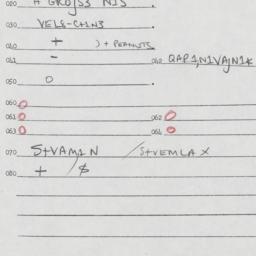 020 A GROJS3 NIS .
030 VELS-C+1N3 .
040 + ) + PEANUTS
041 - 042 QAP1,N1VAJN1K
050 0 .
060 O
061 O 062 O
063 O 064 O
070 S+VAM1N /S+VEMLAX
080 + / $